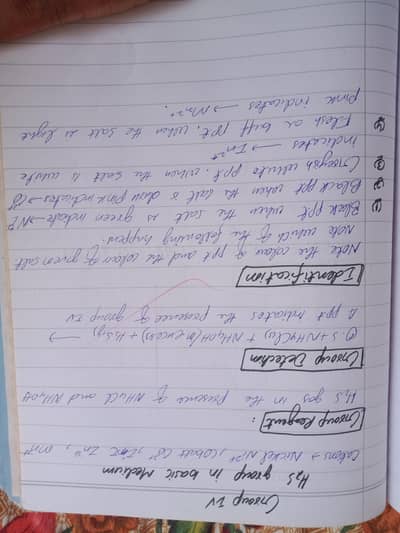 Group IV
H2S group in basic Medium
Cations → Nickel Ni²⁺, Cobalt Co²⁺, Zinc Zn²⁺, Mn²⁺
Group Reagent :
H2S gas in the presence of NH4Cl and NH4OH
Group Detection
O.S + NH4Cl(s) + NH4OH (in excess) + H2S(g) →
A ppt indicates the presence of group IV
Identification
Note the colour of ppt and the colour of given salt
Note which of the following happens.
Black ppt when the salt is green indicate → Ni²⁺
Black ppt when the salt is deep pink indicates → Co²⁺
Greyish white ppt. when the salt is white
indicates → Zn²⁺
Flesh or buff ppt. when the salt is light
pink indicates → Mn²⁺.